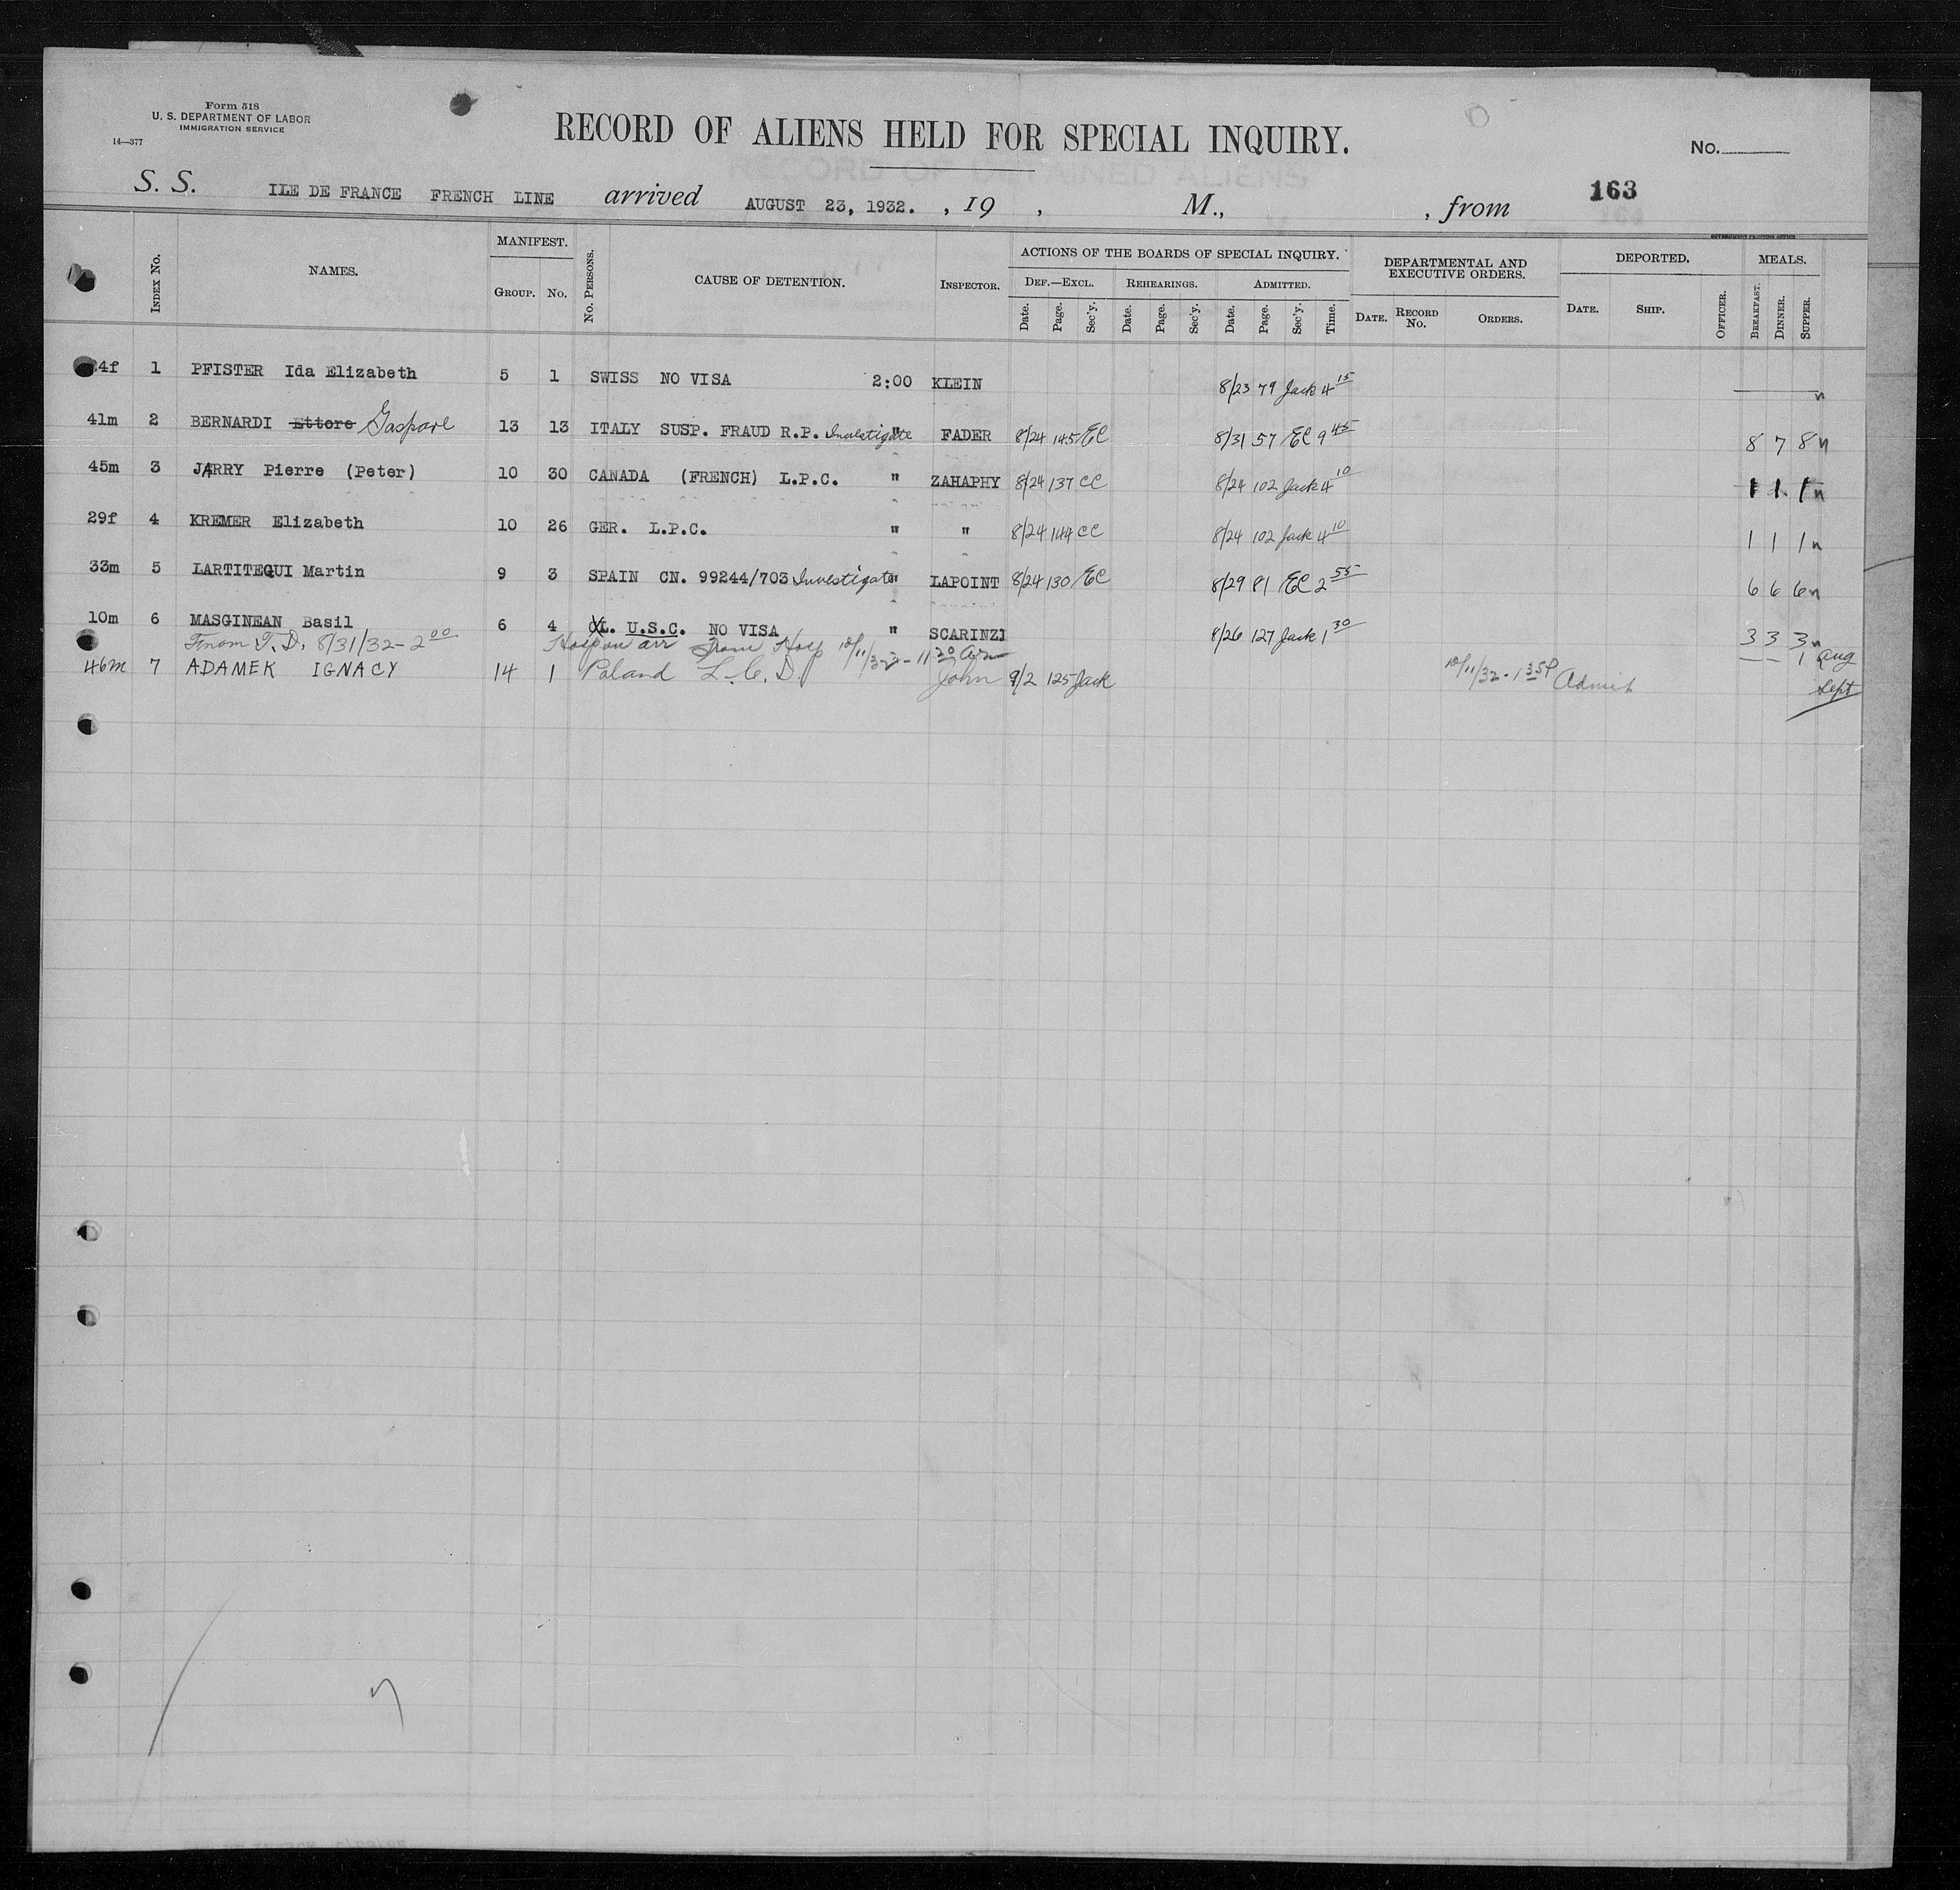 Form 518
U. S. DEPARTMENT OF LABOR
IMMIGRATION SERVICE
14—377
RECORD OF ALIENS HELD FOR SPECIAL INQUIRY.
No.
163
S. S. ILE DE FRANCE FRENCH LINE arrived AUGUST 23, 1932. , 19 , M., , from
GOVERNMENT PRINTING OFFICE
INDEX No. NAMES. MANIFEST. GROUP. No. No. PERSONS. CAUSE OF DETENTION. INSPECTOR. ACTIONS OF THE BOARDS OF SPECIAL INQUIRY. DEPARTMENTAL AND EXECUTIVE ORDERS. DEPORTED. MEALS.
DEF.—EXCL. REHEARINGS. ADMITTED.
Date. Page. Sec'y. Date. Page. Sec'y. Date. Page. Sec'y. Time. DATE. RECORD No. ORDERS. DATE. SHIP. OFFICER. BREAKFAST. DINNER. SUPPER.
4f 1 PFISTER Ida Elizabeth 5 1 SWISS NO VISA 2:00 KLEIN 8/23 79 Jack 4 15 n
41m 2 BERNARDI Ettore Gaspare 13 13 ITALY SUSP. FRAUD R.P. Investigate " FADER 8/24 145 EC 8/31 57 EC 9 45 8 7 8 n
45m 3 JARRY Pierre (Peter) 10 30 CANADA (FRENCH) L.P.C. " ZAHAPHY 8/24 137 CC 8/24 102 Jack 4 10 1 1 1 n
29f 4 KREMER Elizabeth 10 26 GER. L.P.C. " " 8/24 144 CC 8/24 102 Jack 4 10 1 1 1 n
33m 5 LARTITEQUI Martin 9 3 SPAIN CN. 99244/703 Investigate " LAPOINT 8/24 130 EC 8/29 81 EC 2 55 6 6 6 n
10m 6 MASGINEAN Basil 6 4 CL. U.S.C. NO VISA " SCARINZI 8/26 127 Jack 1 30 3 3 3 n
From T.D. 8/31/32 - 2 00 Hosp on arr From Hosp 10/11/32 - 11 20 am — — 1 Aug
46m 7 ADAMEK IGNACY 14 1 Poland L.C.D. John 9/2 125 Jack 10/11/32 - 1 35 P Admit Sept